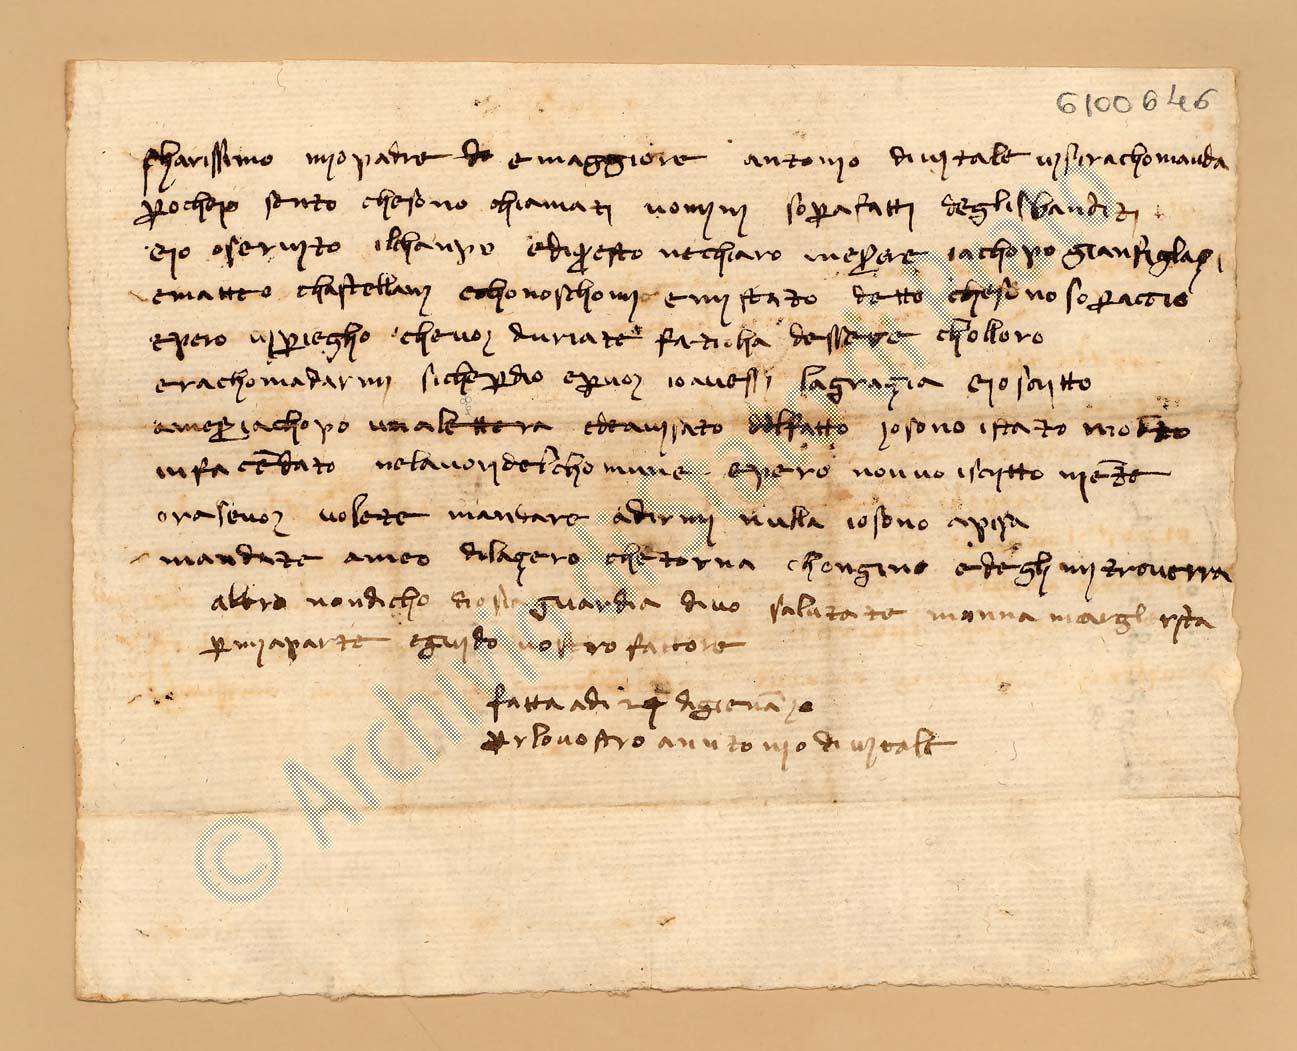 6100646
charissimo mio padre e maggiore antonio di vitale visi rachomanda
però che io sento che sono chiamati uomini sopra fatti degli sbanditi
e io o servito il chanpo e di presto ne chiaro meser iachopo gianfiglazi
e matteo chastellani e chonoschomi e mi stato detto che sono sopra ccio
e pero vi priegho che voi duriate faticha desser cholloro
e rachomadarmi siche per dio e per voi io avessi la grazia e io scritto
a meser iachopo una lettera ed e avisato del fatto io sono istato molto
infacendato ne lavori del chomune e pero non vo iscritto niente
ora se voi volete mandare a dirmi nulla io sono a pisa
mandate a meo di lapero che torna chongino ed egli mi troverra
altro non dicho dio sia guardia di vo salutate monna margherita
per mia parte e guido vostro fattore
fatta adi di gienaio
per lo vostro anntonio di vitale
© Archivio di Stato di Prato